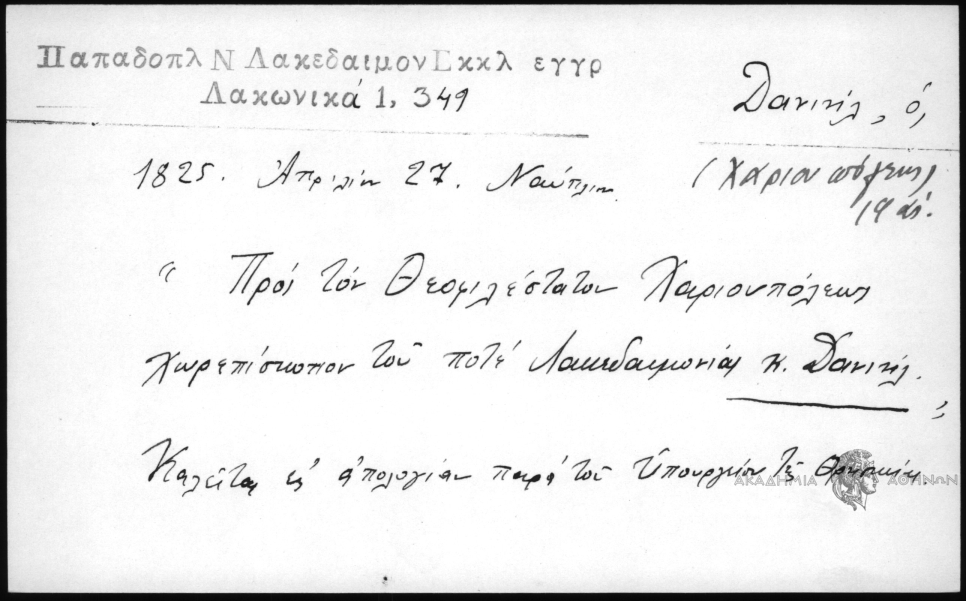 Παπαδοπλ Ν Λακεδαιμον Εκκλ εγγρ
Λακωνικά 1, 349
Δανιήλ, ὁ,
(Χαριουπόλεως)
19 αἰ.
1825. Ἀπριλίου 27. Ναύπλιον.
“ Πρός τόν Θεοφιλέστατον Χαριουπόλεως
χωρεπίσκοπον τοῦ ποτέ Λακεδαιμονίας κ. Δανιήλ. „
Καλεῖται εἰς ἀπολογίαν παρά τοῦ Ὑπουργείου τῆς Θρησκείας.
ΑΚΑΔΗΜΙΑ ΑΘΗΝΩΝ